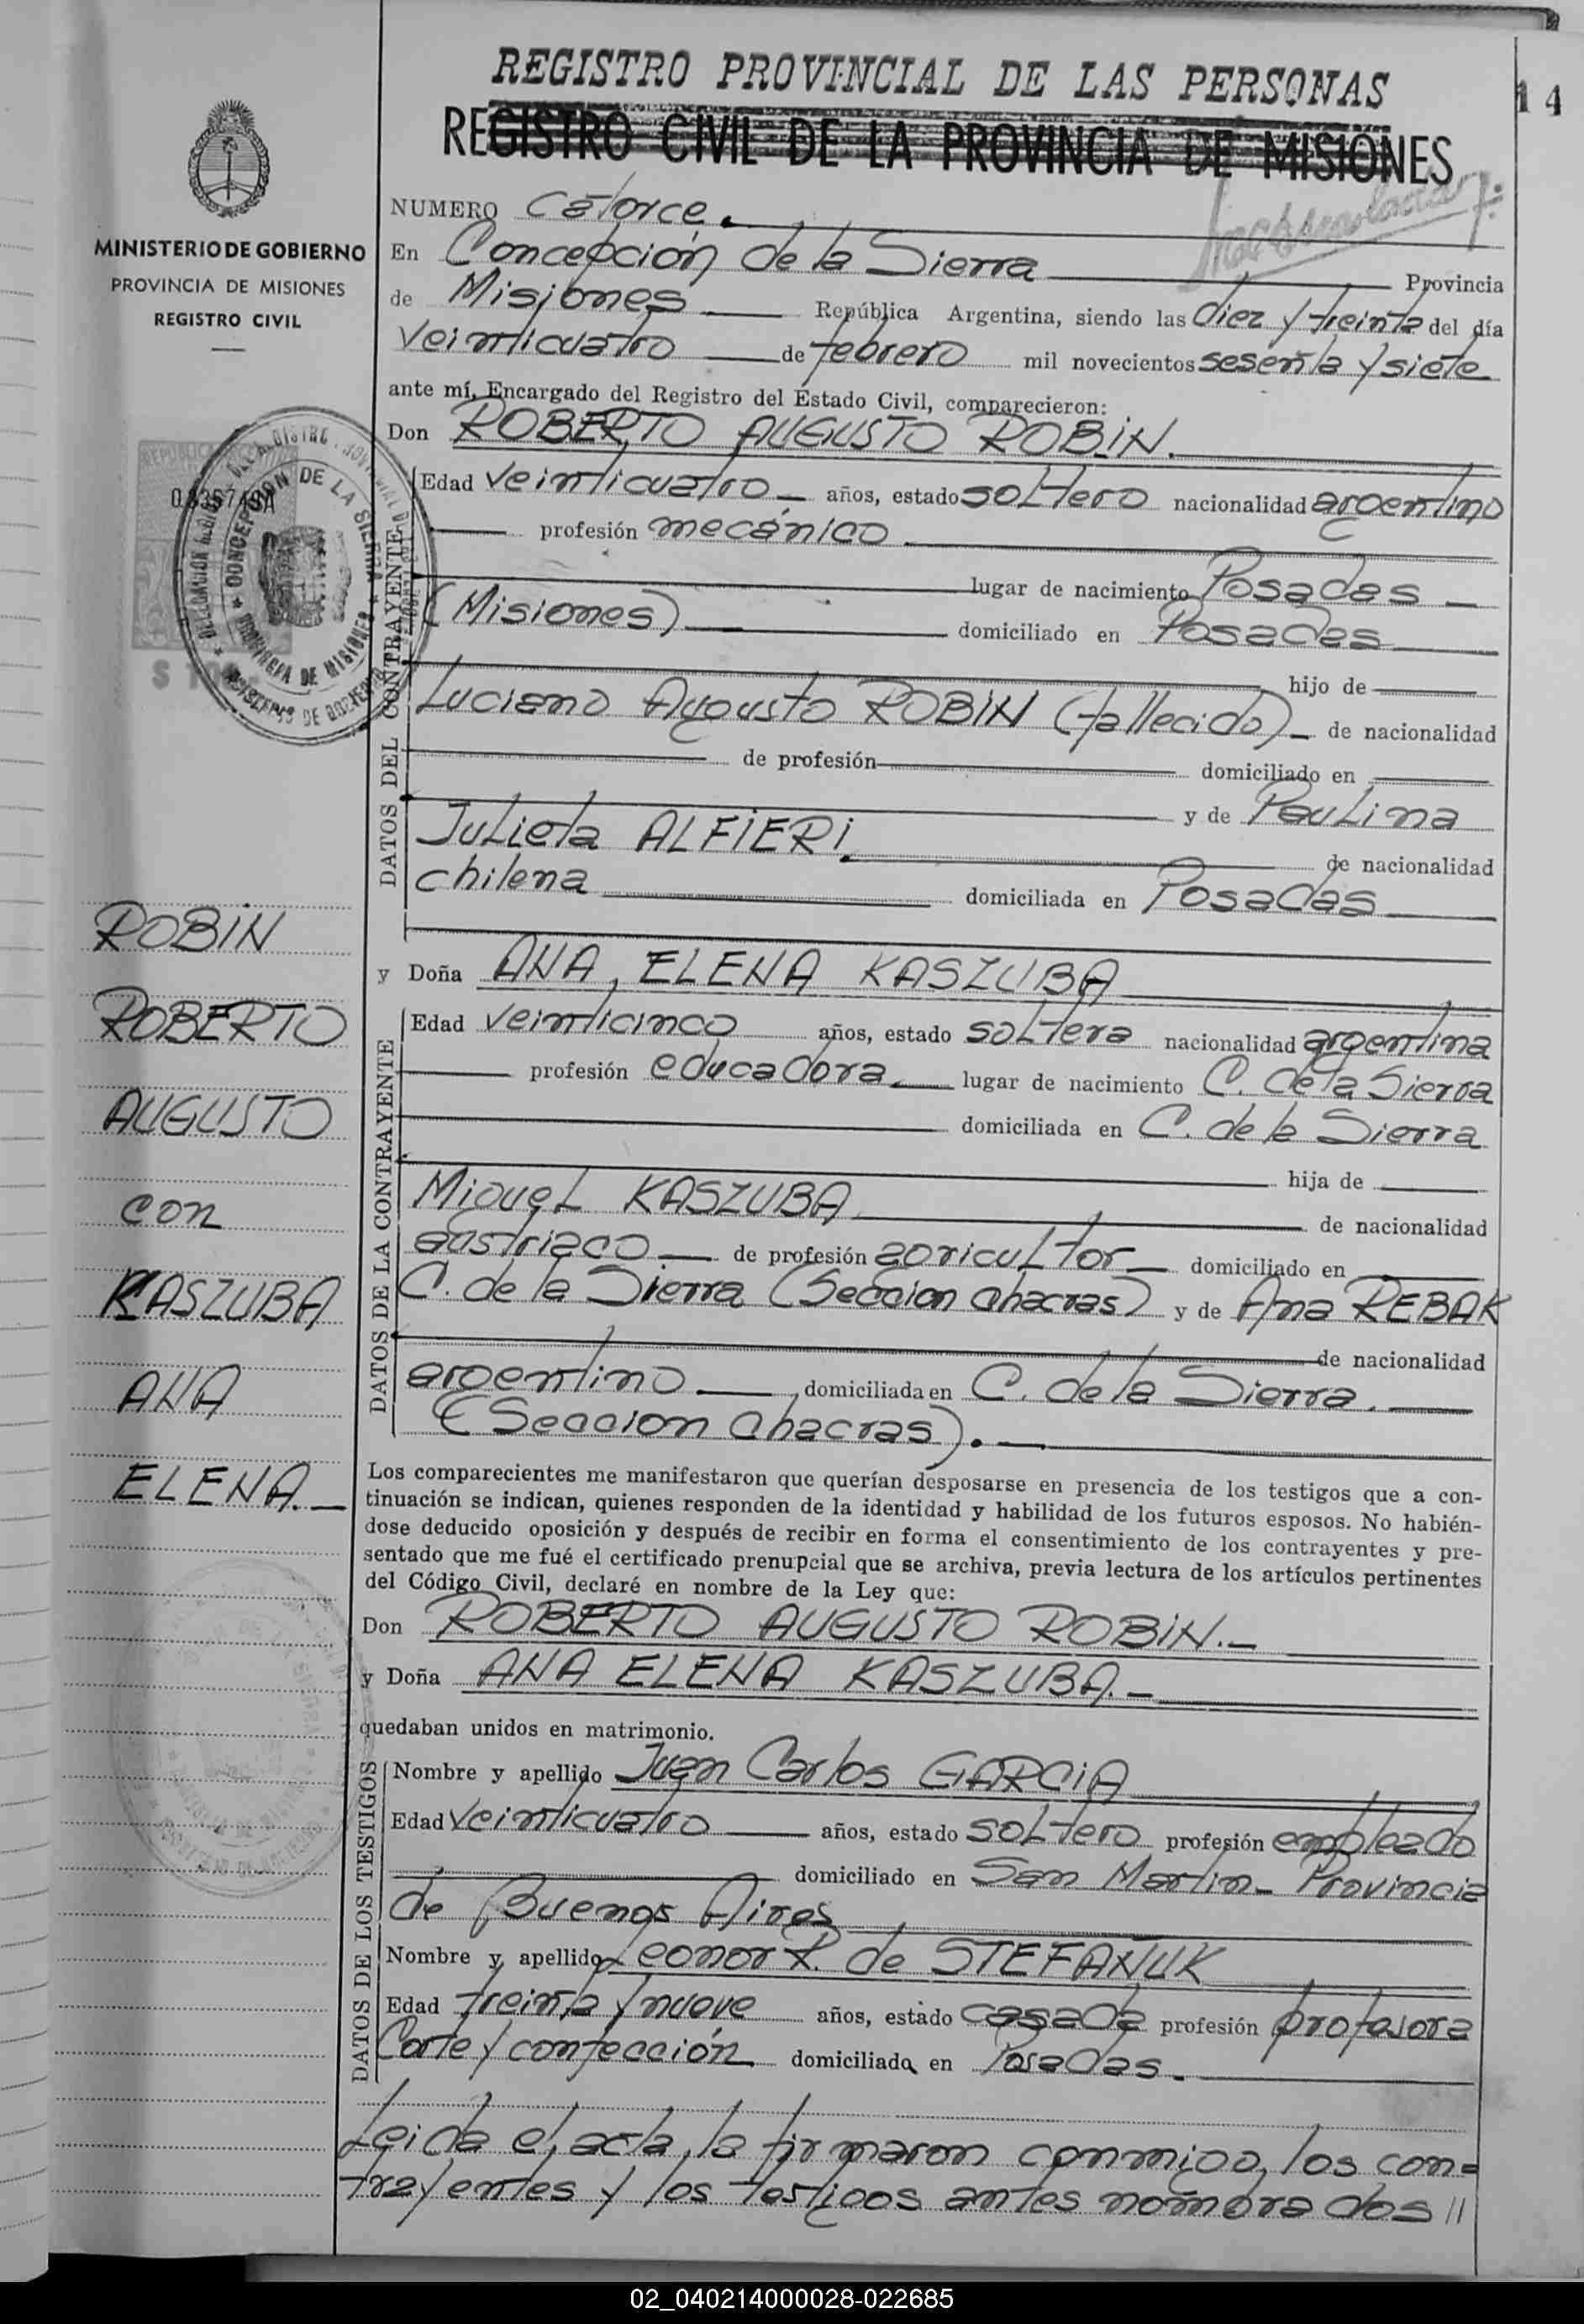 REGISTRO PROVINCIAL DE LAS PERSONAS
14
REGISTRO CIVIL DE LA PROVINCIA DE MISIONES
MINISTERIO DE GOBIERNO
PROVINCIA DE MISIONES
REGISTRO CIVIL
NUMERO Catorce.
En Concepción de la Sierra Provincia
de Misiones República Argentina, siendo las diez y treinta del día
veinticuatro de febrero mil novecientos sesenta y siete
ante mí, Encargado del Registro del Estado Civil, comparecieron:
Don ROBERTO AUGUSTO ROBIN.
DATOS DEL CONTRAYENTE
Edad veinticuatro años, estado soltero nacionalidad argentino
profesión mecánico
lugar de nacimiento Posadas
(Misiones) domiciliado en Posadas
hijo de
Luciano Augusto ROBIN (fallecido) de nacionalidad
de profesión domiciliado en
y de Paulina
Julieta ALFIERI. de nacionalidad
chilena domiciliada en Posadas
y Doña ANA, ELENA KASZUBA
DATOS DE LA CONTRAYENTE
Edad veinticinco años, estado soltera nacionalidad argentina
profesión educadora lugar de nacimiento C. de la Sierra
domiciliada en C. de la Sierra
hija de
Miguel KASZUBA de nacionalidad
austriaco de profesión agricultor domiciliado en
C. de la Sierra (Seccion chacras) y de Ana REBAK
de nacionalidad
argentino domiciliada en C. de la Sierra.
(Seccion chacras).
Los comparecientes me manifestaron que querían desposarse en presencia de los testigos que a con-
tinuación se indican, quienes responden de la identidad y habilidad de los futuros esposos. No habién-
dose deducido oposición y después de recibir en forma el consentimiento de los contrayentes y pre-
sentado que me fué el certificado prenupcial que se archiva, previa lectura de los artículos pertinentes
del Código Civil, declaré en nombre de la Ley que:
Don ROBERTO AUGUSTO ROBIN.-
y Doña ANA ELENA KASZUBA.-
quedaban unidos en matrimonio.
DATOS DE LOS TESTIGOS
Nombre y apellido Juan Carlos GARCIA
Edad veinticuatro años, estado soltero profesión empleado
domiciliado en San Martin- Provincia
de Buenos Aires
Nombre y apellido Leonor R. de STEFAÑUK
Edad treinta y nueve años, estado casada profesión profesora
Corte y confección domiciliada en Posadas.-
Leida el acta, la firmaron conmigo, los con=
trayentes y los testigos antes nombrados //
ROBIN
ROBERTO
AUGUSTO
con
KASZUBA
ANA
ELENA.-
CONCEPCION DE LA SIERRA
PROVINCIA DE MISIONES
02_040214000028-022685